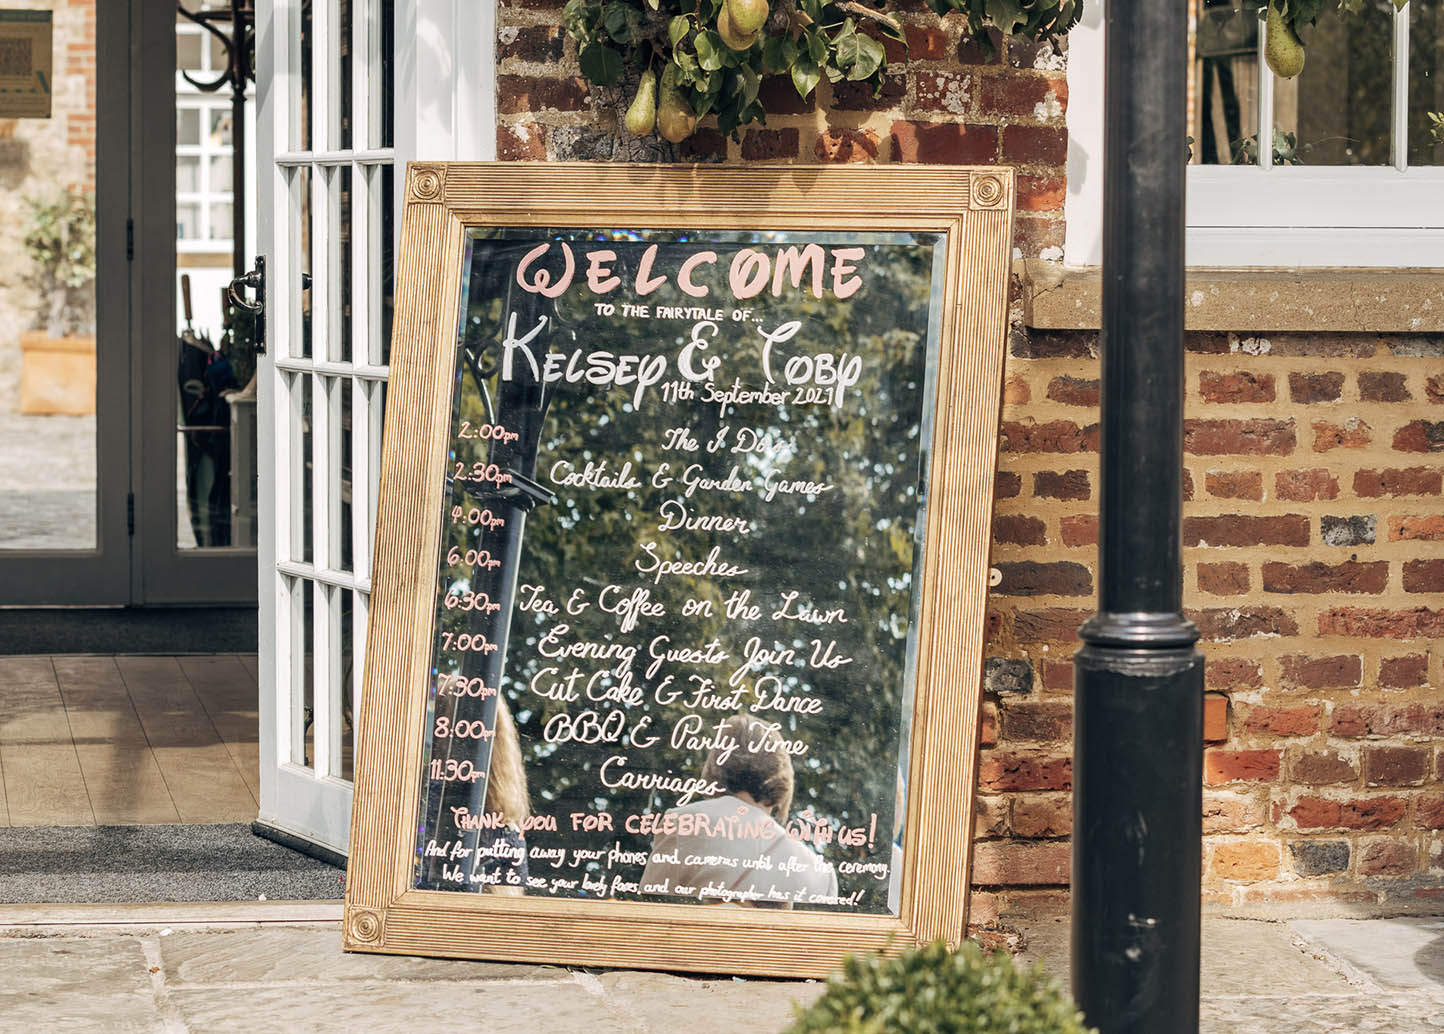 WELCOME
TO THE FAIRYTALE OF...
KELSEY & TOBY
11th September 2021
2:00pm The I Dos
2:30pm Cocktails & Garden Games
4:00pm Dinner
6:00pm Speeches
6:30pm Tea & Coffee on the Lawn
7:00pm Evening Guests Join Us
7:30pm Cut Cake & First Dance
8:00pm BBQ & Party Time
11:30pm Carriages
THANK YOU FOR CELEBRATING WITH US!
And for putting away your phones and cameras until after the ceremony.
We want to see your lovely faces, and our photographer has it covered!